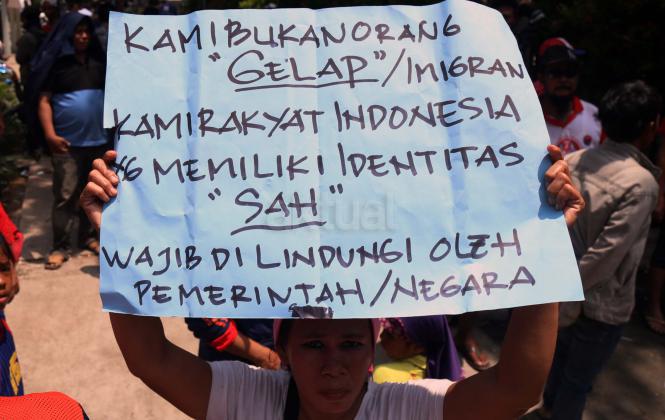 KAMI BUKAN ORANG
"GELAP"/IMIGRAN
KAMI RAKYAT INDONESIA
YG MEMILIKI IDENTITAS
"SAH"
WAJIB DI LINDUNGI OLEH
PEMERINTAH/NEGARA
aktual